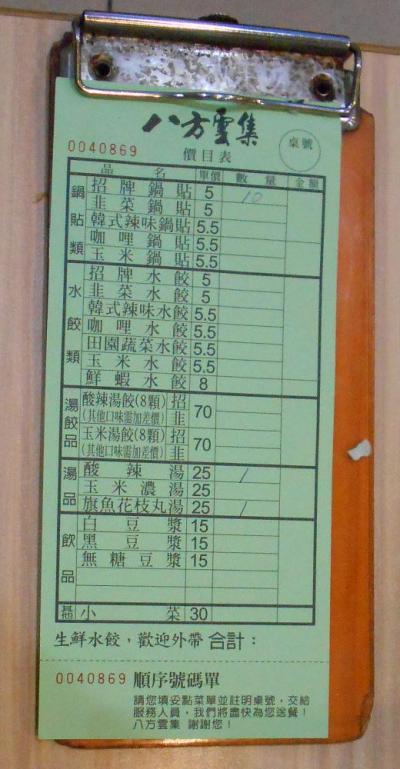 八方雲集
桌號
0040869
價目表
品名 單價 數量 金額
鍋貼類
招牌鍋貼 5 10
韭菜鍋貼 5
韓式辣味鍋貼 5.5
咖哩鍋貼 5.5
玉米鍋貼 5.5
水餃類
招牌水餃 5
韭菜水餃 5
韓式辣味水餃 5.5
咖哩水餃 5.5
田園蔬菜水餃 5.5
玉米水餃 5.5
鮮蝦水餃 8
湯餃品
酸辣湯餃(8顆) 招 70
(其他口味需加差價) 韭
玉米湯餃(8顆) 招 70
(其他口味需加差價) 韭
湯品
酸辣湯 25 /
玉米濃湯 25
旗魚花枝丸湯 25 /
飲品
白豆漿 15
黑豆漿 15
無糖豆漿 15
其他 小菜 30
生鮮水餃，歡迎外帶 合計：
0040869 順序號碼單
請您填妥點菜單並註明桌號，交給
服務人員，我們將盡快為您送餐！
八方雲集 謝謝您！